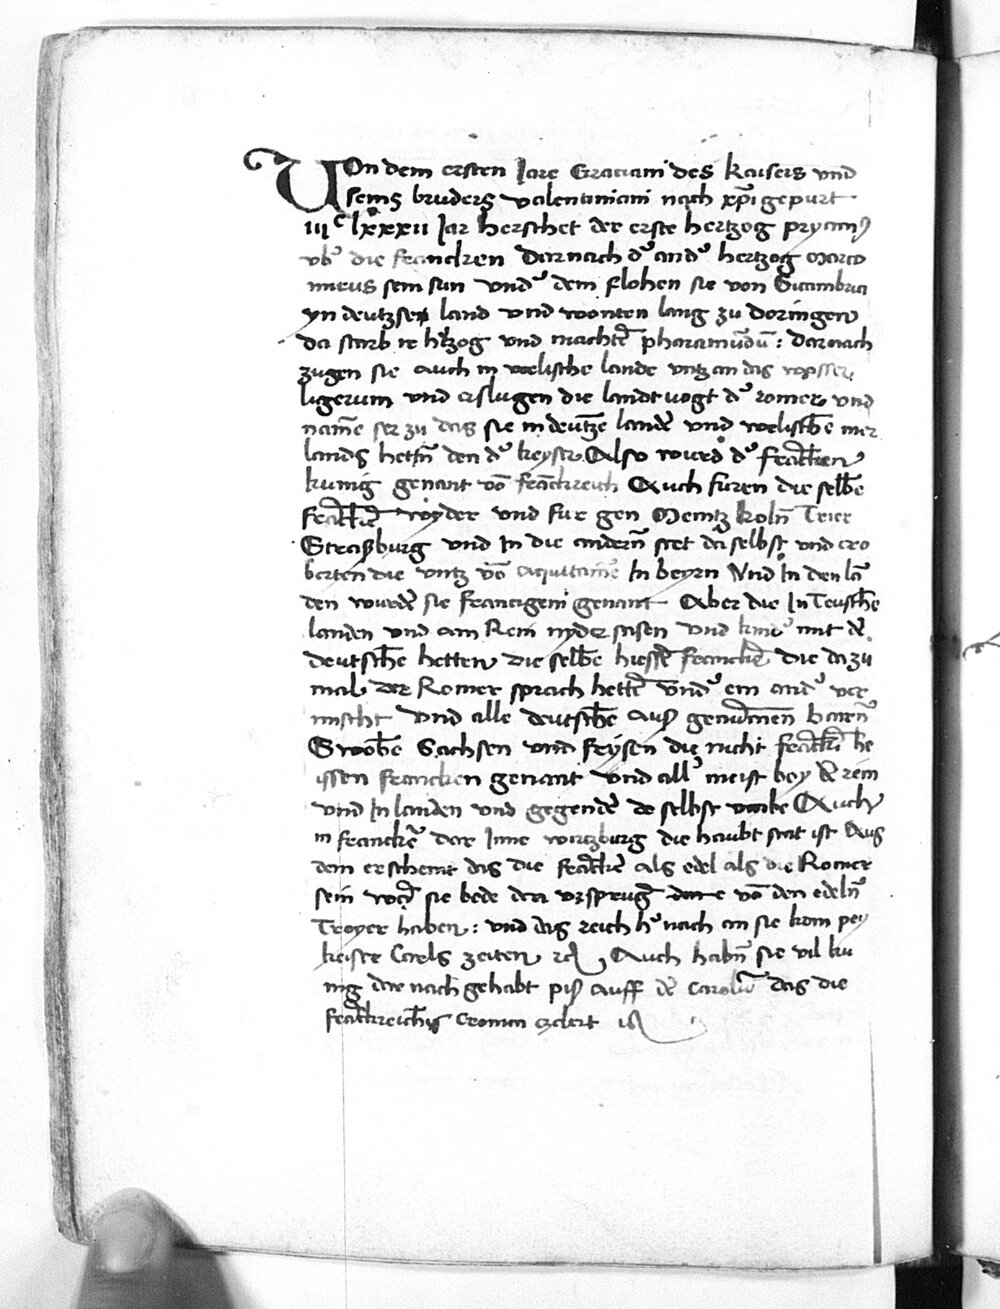 Von dem ersten Jare Graciani des kaisers vnd
seins bruders valentiniani nach xp̄i gepurt
iiiᶜ lxxxii Jar herschet der erste hertzog pryamꝰ
vbˀ die francken Darnach dˀ andˀ hertzog Marco
mirus sein sun vndˀ dem flohen sie von Sicambria
yn deutzsch land vnd wonten lang zu doringen
da starb ir h̓tzog vnd machtē pharamūdū : darnach
zugen sie auch in welische lande vntz an das wasser
ligerum vnd erslugen die landtuogt dˀ romer vnd
namē ser zu das sie in deutzē landē vnd welischē
lands hettn̄ den dˀ keyser Also ward dˀ franckrein
kunig genant vō franckreich Auch furen die selbē
franckē wyder vnd fur gen Meintz koln̄ Trier
Straßburg vnd In die andern̄ stet da selbst vnd ero
berten die vntz vō aquitanīe In beyrn Vnd In den lā
den wurdē sie francigeni genant Aber die In Teuschē
landen vnd am Rein nyder sasen vnd kindˀ mit dē
deutschē hetten die selbē hiessē franckē die dazu
mal der Romer sprach hettē vndˀ ein andˀ ver
mischt vnd alle deutschē auß genumen bairn̄
Swobē Sachsen vnd freysen die nicht franckē he
issen francken genant vnd allˀ meist bey dē rein
vnd In landen vnd gegendē do selbst Auch
in franckē dar Inne wirtzburg die haubt stat ist Aus
dem erscheint das die franckē als edel als die Romer
sein wan̄ sie bede den vrsprūg vō den edeln̄
Troyer haben : vnd das reich hˀ nach an sie kom pey
keiser Carels zeiten Auch habn̄ sie vil ku
nig dar nach gehabt piß auff dē Carolū das die
franckreichs Cronin erclert ist